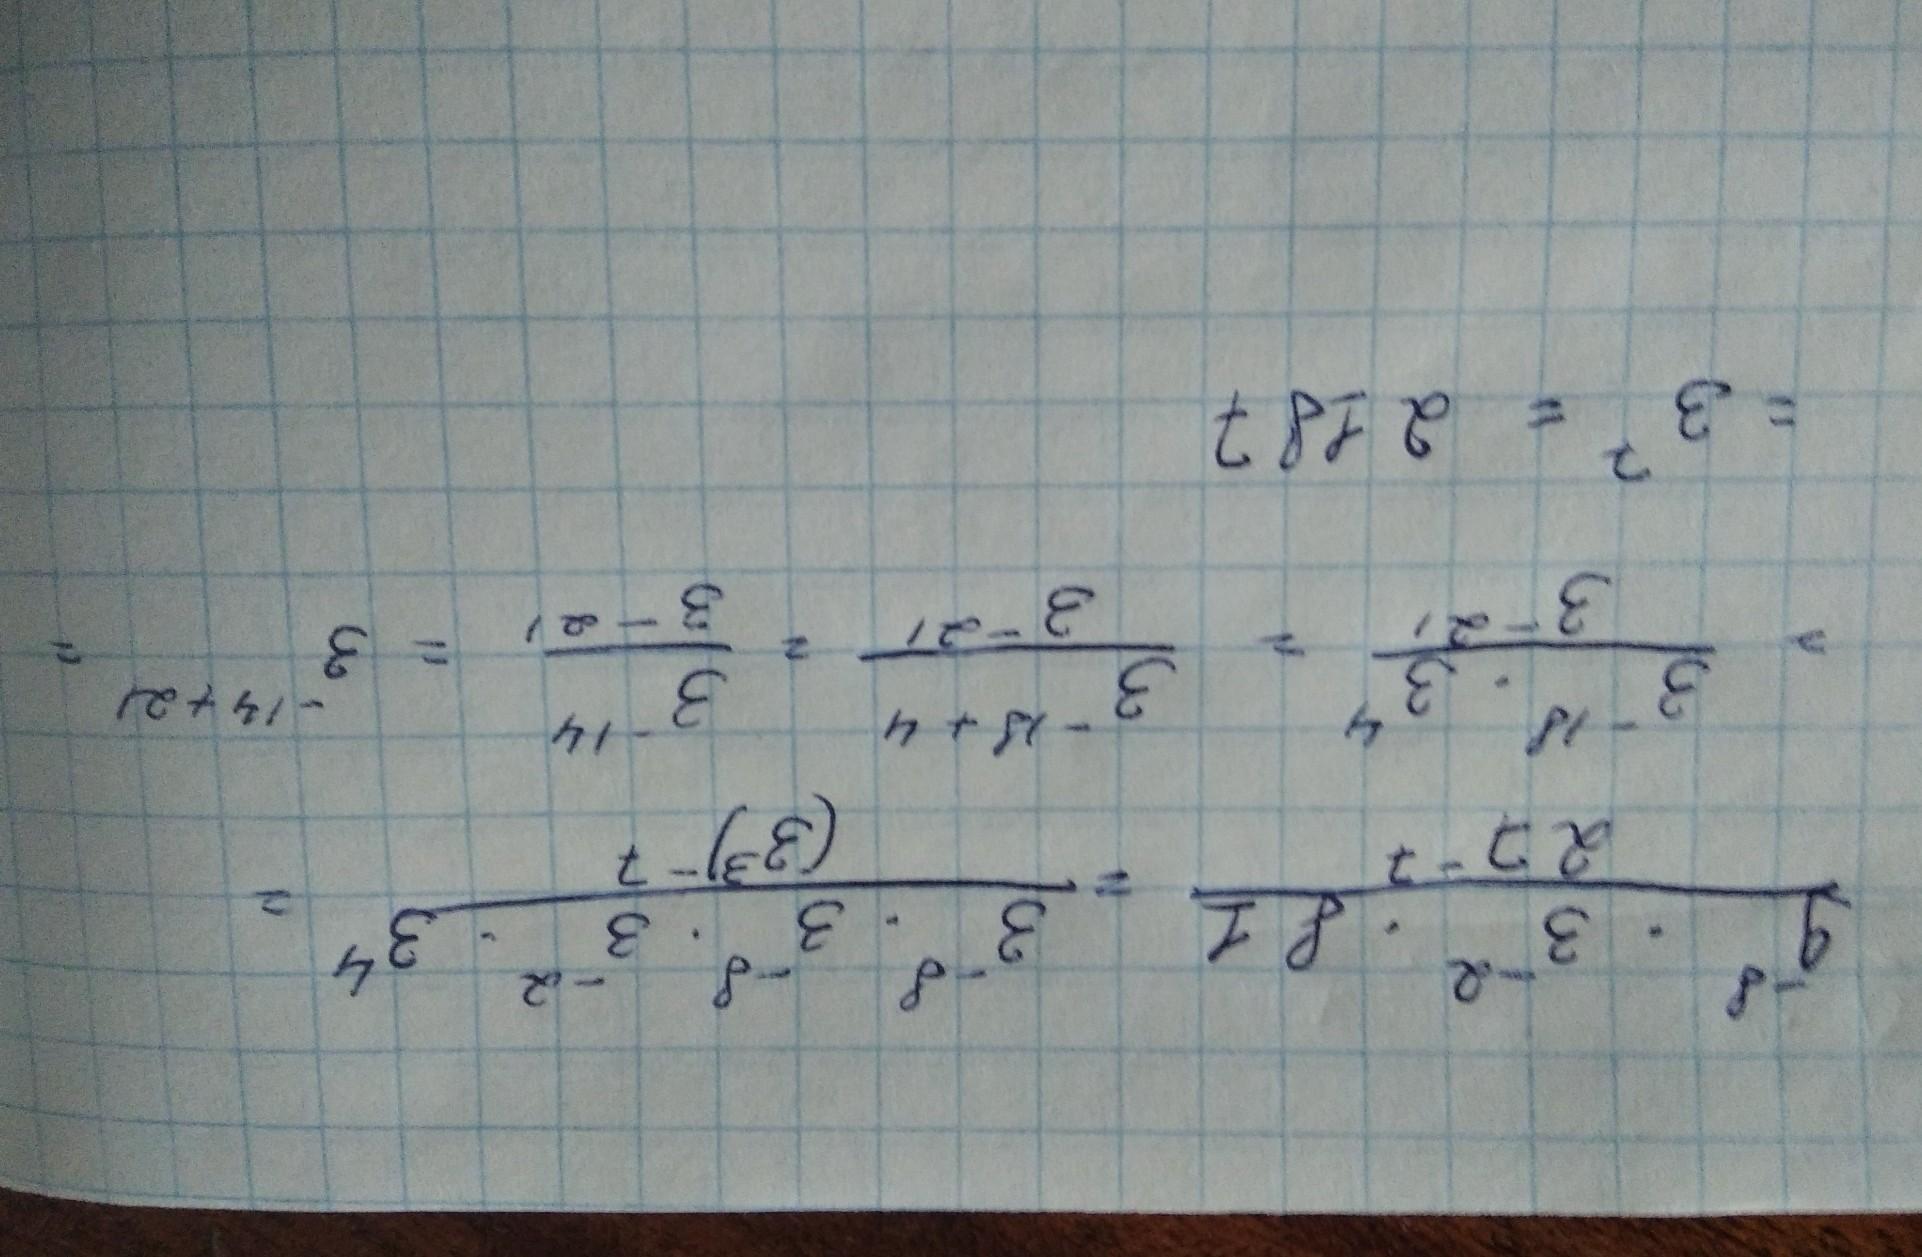 9^-8 · 3^-2 · 81 / 27^-7 = 3^-8 · 3^-8 · 3^-2 · 3^4 / (3^3)^-7 =
= 3^-18 · 3^4 / 3^-21 = 3^-18+4 / 3^-21 = 3^-14 / 3^-21 = 3^-14+21 =
= 3^7 = 2187